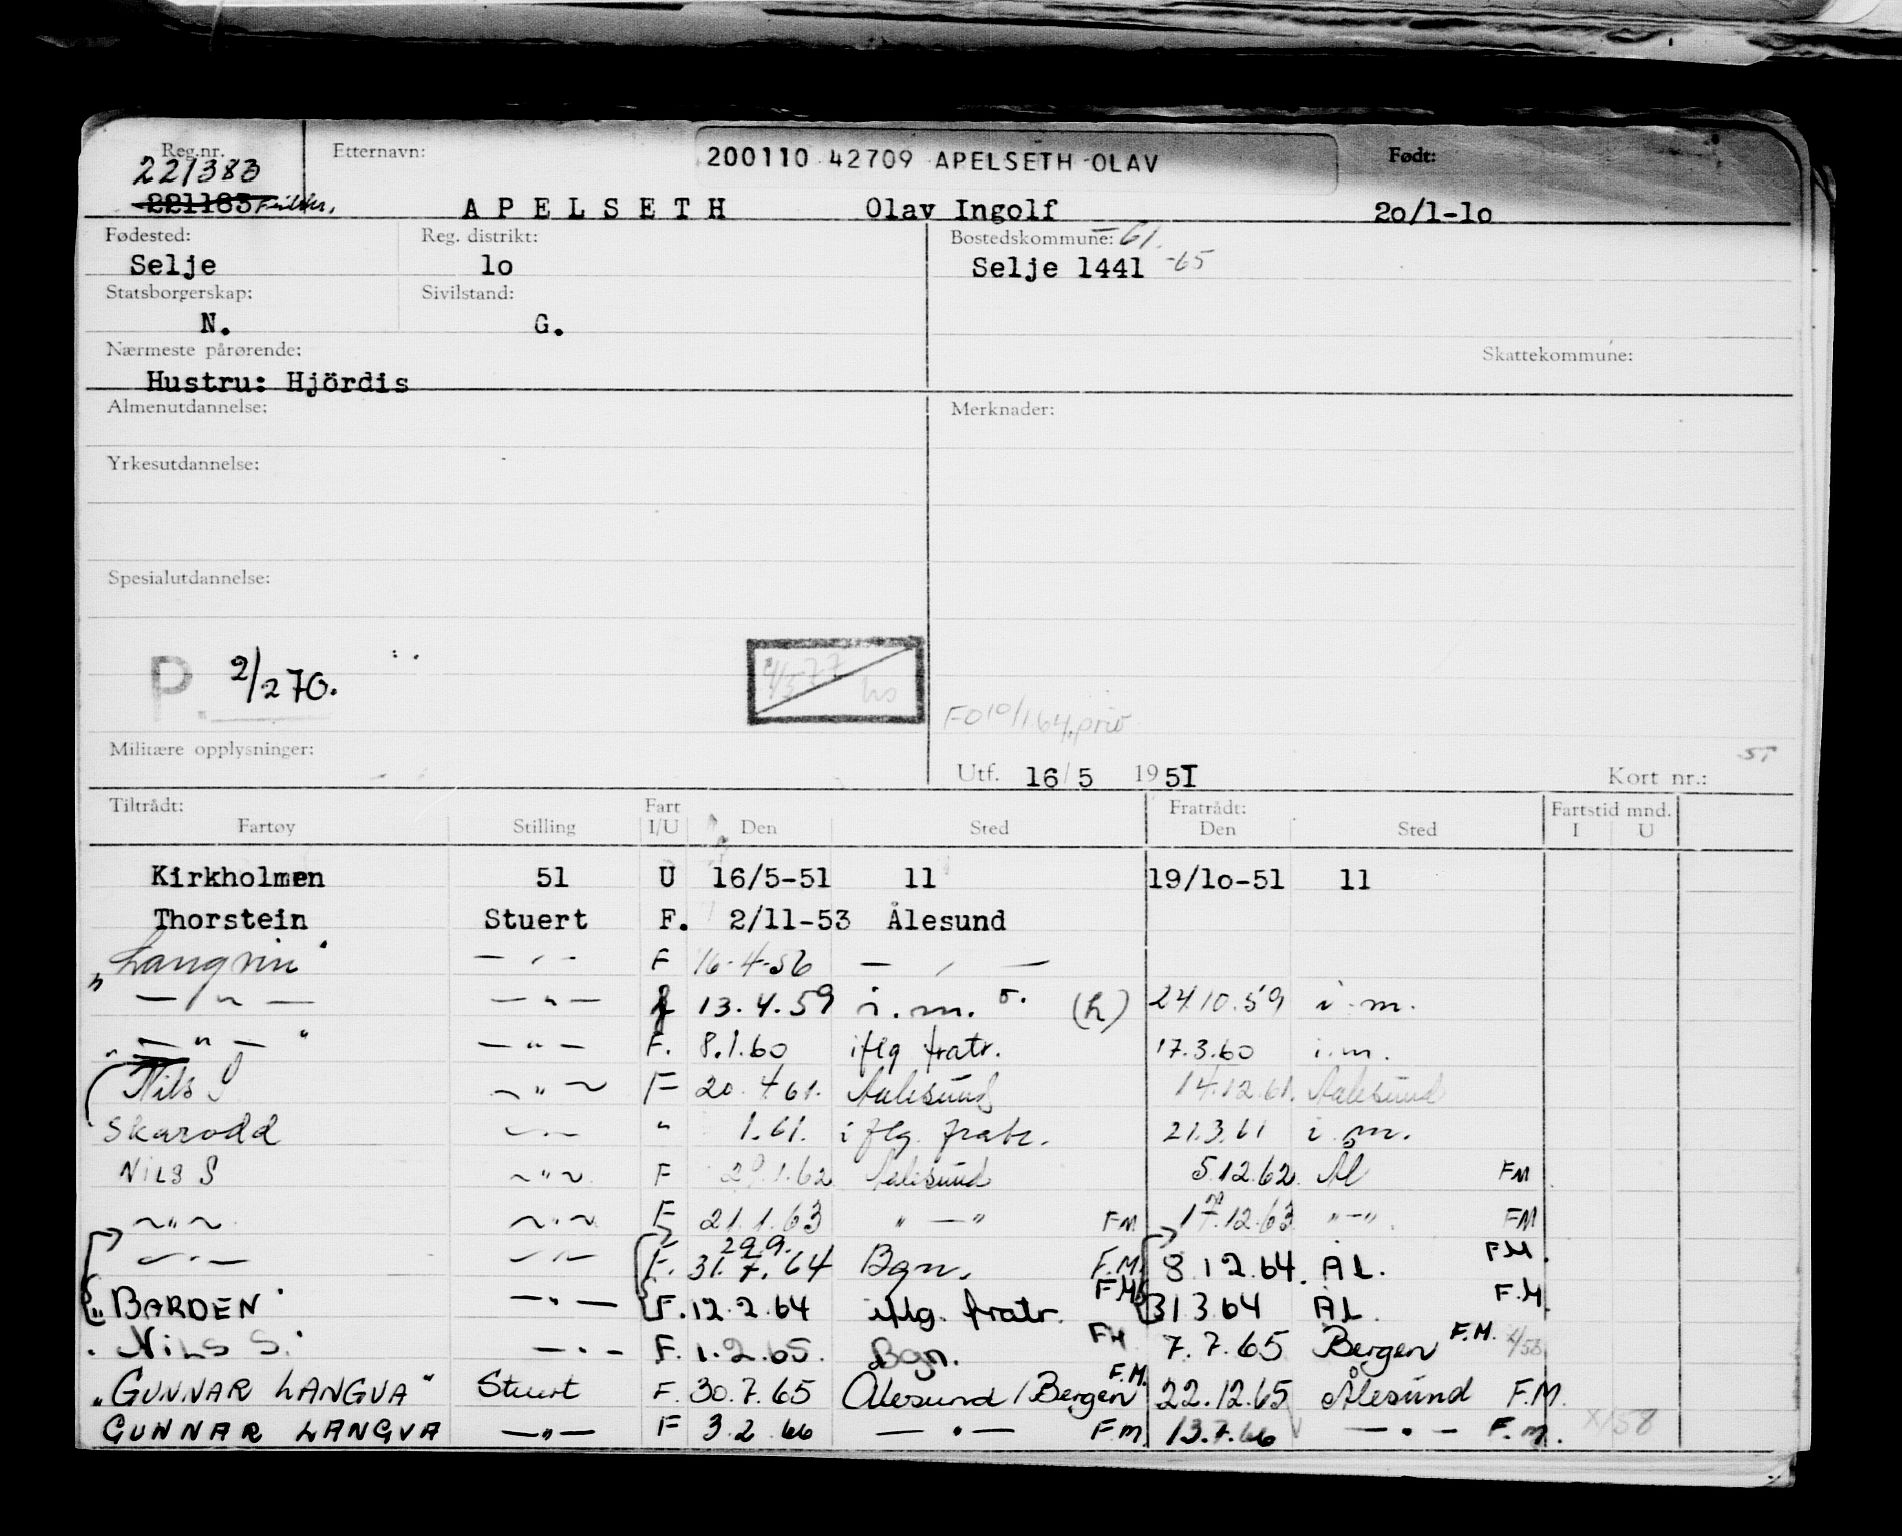 Reg.nr. Etternavn: 200110 42709 APELSETH OLAV Født:
221383
221183 APELSETH Olav Ingolf 2o/1-1o
Fødested: Reg. distrikt: Bostedskommune: -61.
Selje 1o Selje 1441 -65
Statsborgerskap: Sivilstand:
N. G.
Nærmeste pårørende: Skattekommune:
Hustru: Hjördis
Almenutdannelse: Merknader:
Yrkesutdannelse:
Spesialutdannelse:
P. 2/270. 4/577
FO 10/1.64, priv
Militære opplysninger:
Utf. 16/5 1951 Kort nr.:
Tiltrådt: Fart Fratrådt: Fartstid mnd.
Fartøy Stilling I/U Den Sted Den Sted I U
Kirkholmen 51 U 16/5-51 11 19/1o-51 11
Thorstein Stuert F. 2/11-53 Ålesund
"Langvin" — " — F 16-4-56 — " —
— " — — " — f 13.4.59 i.m. (h) 24.10.59 i.m.
" — " — " — " — F. 8.1.60 iflg fratr. 17.3.60 i.m.
Nils S — " — F 20.4.61. Aalesund 14.12.61. Aalesund
Skarodd — " — " 1.61. iflg. fratr. 21.3.61 i.m.
NILS S — " — F 29.1.62 Aalesund 5.12.62. Ål FM
— " — — " — F 21.1.63 " — " FM 17.12.63 " — " FM
29.9.
— " — — " — F. 31.7.64 Bgn. F.M. 8.12.64. ÅL. F.M.
"BARDEN" — " — F. 12.2.64 iflg. fratr. F.M. 31.3.64 ÅL. F.M.
"NILS S." — " — F. 1.2.65. Bgn. FM 7.7.65 Bergen F.M.
"GUNNAR LANGVA" Stuert F. 30.7.65 Ålesund/Bergen F.M. 22.12.65 Ålesund F.M.
GUNNAR LANGVA — " — F 3.2.66 — " — F.M. 13.7.66 — " — F.M. X/58